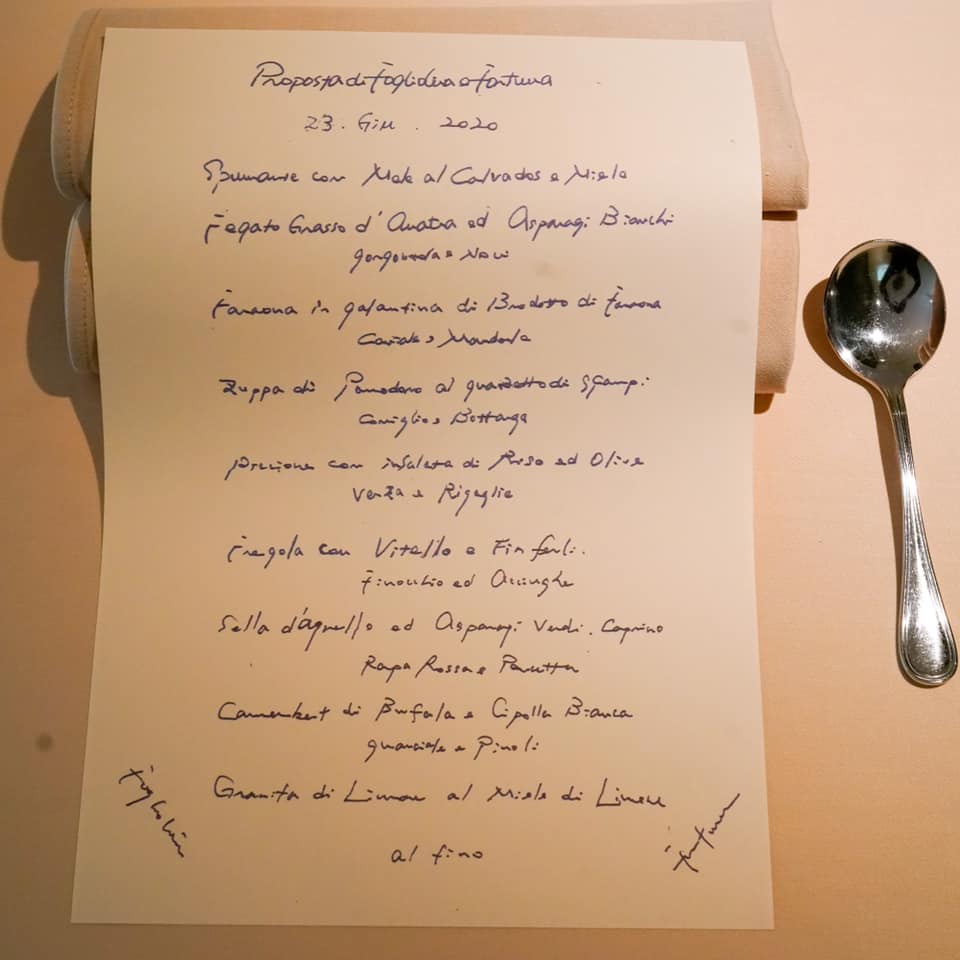 Proposta di Fogliolina e Fortuna
23. Giu. 2020
Spumante con Mele al Calvados e Miele
Fegato Grasso d'Anatra ed Asparagi Bianchi
gorgonzola e Noci
Faraona in galantina di Brodetto di Faraona
Carciofo e Mandorla
Zuppa di Pomodoro al guazzetto di Scampi
Coniglio e Bottarga
Piccione con insalata di Riso ed Olive
Verza e Rigaglie
Fregola con Vitello e Finferli.
Finocchio ed Acciughe
Sella d'agnello ed Asparagi Verdi. Caprino
Rapa Rossa e
Camembert di Bufala e Cipolla Bianca
guanciale e Pinoli
Granita di Limone al Miele di Limone
al fino